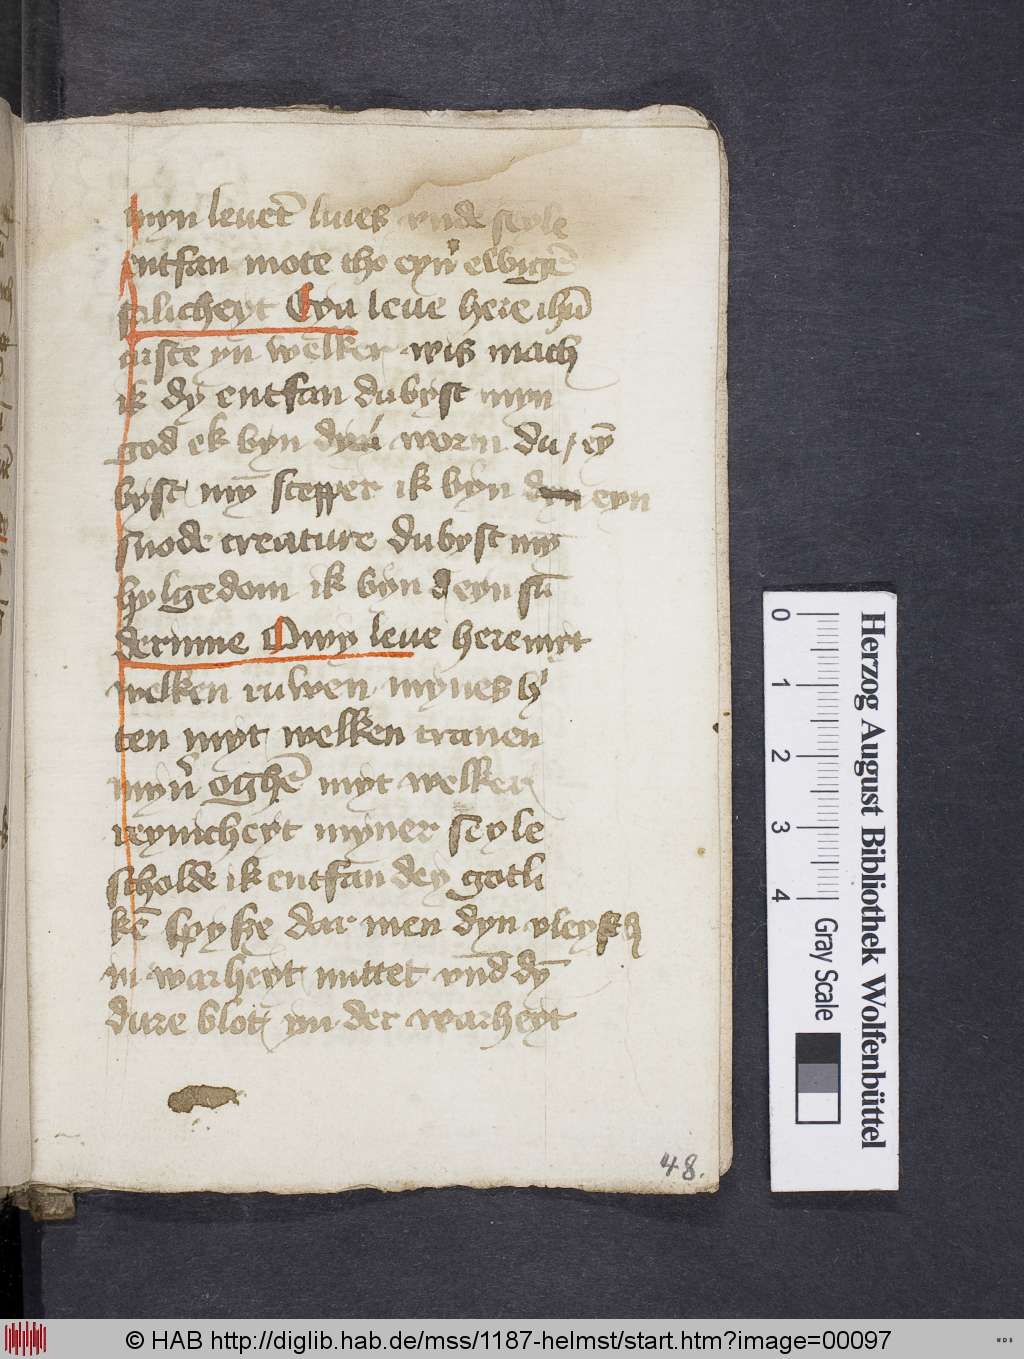 myn leuet̄ liues vnde seyle
entfan mote tho eyn̄ ewigē
salicheyt Eya leue here ihū
criste yn welker wis mach
ik dy entfan du byst myn
god ek byn dyn worm du eȳ
byst mȳ scepper ik byn eyn
snode creature du byst mȳ
hylgedom ik byn eyn sū
derinne Owy leue here myt
welken ruwen mynes h
ten myt welken tranen
myn̄ oghē myt welker
reynicheyt myner seyle
scholde ik entfan dey gotli
kē spyse dar men dyn vleysch
in warheyt nuttet vnd dȳ
dure blot yn der warheyt
48.
Herzog August Bibliothek Wolfenbüttel
0 1 2 3 4
Gray Scale
© HAB http://diglib.hab.de/mss/1187-helmst/start.htm?image=00097